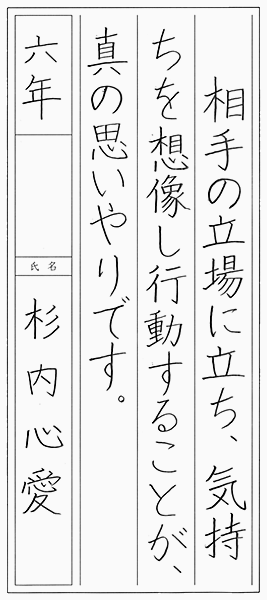 相手の立場に立ち、気持
ちを想像し行動することが、
真の思いやりです。
六年
氏名
杉内心愛